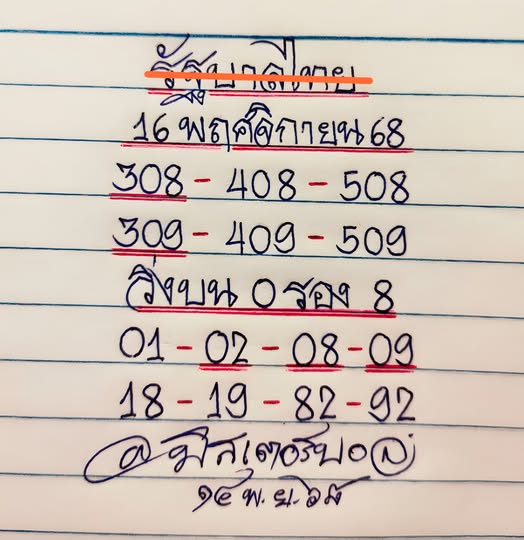 รัฐบาลไทย
16 พฤศจิกายน 68
308 - 408 - 508
309 - 409 - 509
วิ่งบน 0 รอง 8
01 - 02 - 08 - 09
18 - 19 - 82 - 92
@มีสเตอร์บอล
๑๔ พ.ย. ๖๘